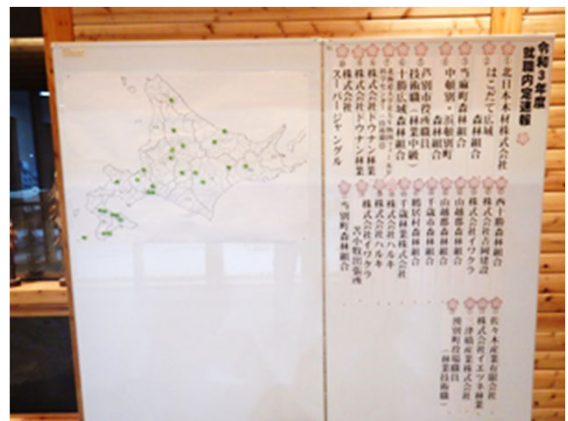 令和3年度
就職内定速報
北日本木材株式会社
はこだて広域
森林組合
当麻町森林組合
中頓別・浜頓別町
森林組合
芦別市役職員
技術職(林業中級)
十勝広域森林組合
株式会社ドウナン林業
株式会社ドウナン林業
株式会社
スーパージャングル
西十勝森林組合
株式会社吉岡建設
株式会社イワクラ
山越郡森林組合
山越郡森林組合
千歳市森林組合
鶴居村森林組合
千歳林業株式会社
株式会社ハルキ
株式会社ハルキ
株式会社イワクラ
苫小牧出張所
当別町森林組合
佐々木産業有限会社
株式会社イエツネ林業
三津橋産業株式会社
湧別町役場職員
(林業技術職)